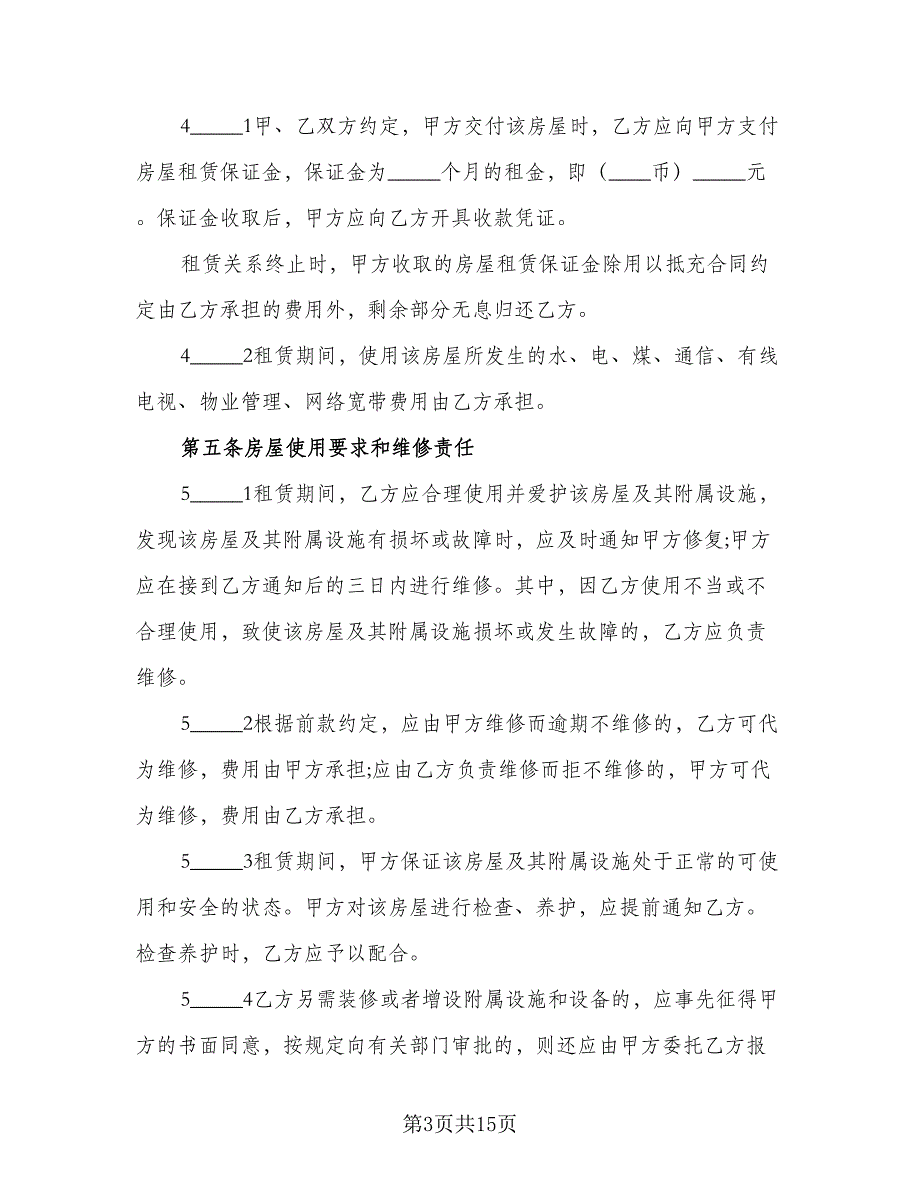 4_____1甲、乙双方约定，甲方交付该房屋时，乙方应向甲方支付
房屋租赁保证金，保证金为_____个月的租金，即（____币）_____元
。保证金收取后，甲方应向乙方开具收款凭证。
租赁关系终止时，甲方收取的房屋租赁保证金除用以抵充合同约
定由乙方承担的费用外，剩余部分无息归还乙方。
4_____2租赁期间，使用该房屋所发生的水、电、煤、通信、有线
电视、物业管理、网络宽带费用由乙方承担。
第五条房屋使用要求和维修责任
5_____1租赁期间，乙方应合理使用并爱护该房屋及其附属设施，
发现该房屋及其附属设施有损坏或故障时，应及时通知甲方修复;甲方
应在接到乙方通知后的三日内进行维修。其中，因乙方使用不当或不
合理使用，致使该房屋及其附属设施损坏或发生故障的，乙方应负责
维修。
5_____2根据前款约定，应由甲方维修而逾期不维修的，乙方可代
为维修，费用由甲方承担;应由乙方负责维修而拒不维修的，甲方可代
为维修，费用由乙方承担。
5_____3租赁期间，甲方保证该房屋及其附属设施处于正常的可使
用和安全的状态。甲方对该房屋进行检查、养护，应提前通知乙方。
检查养护时，乙方应予以配合。
5_____4乙方另需装修或者增设附属设施和设备的，应事先征得甲
方的书面同意，按规定向有关部门审批的，则还应由甲方委托乙方报
第3页共15页